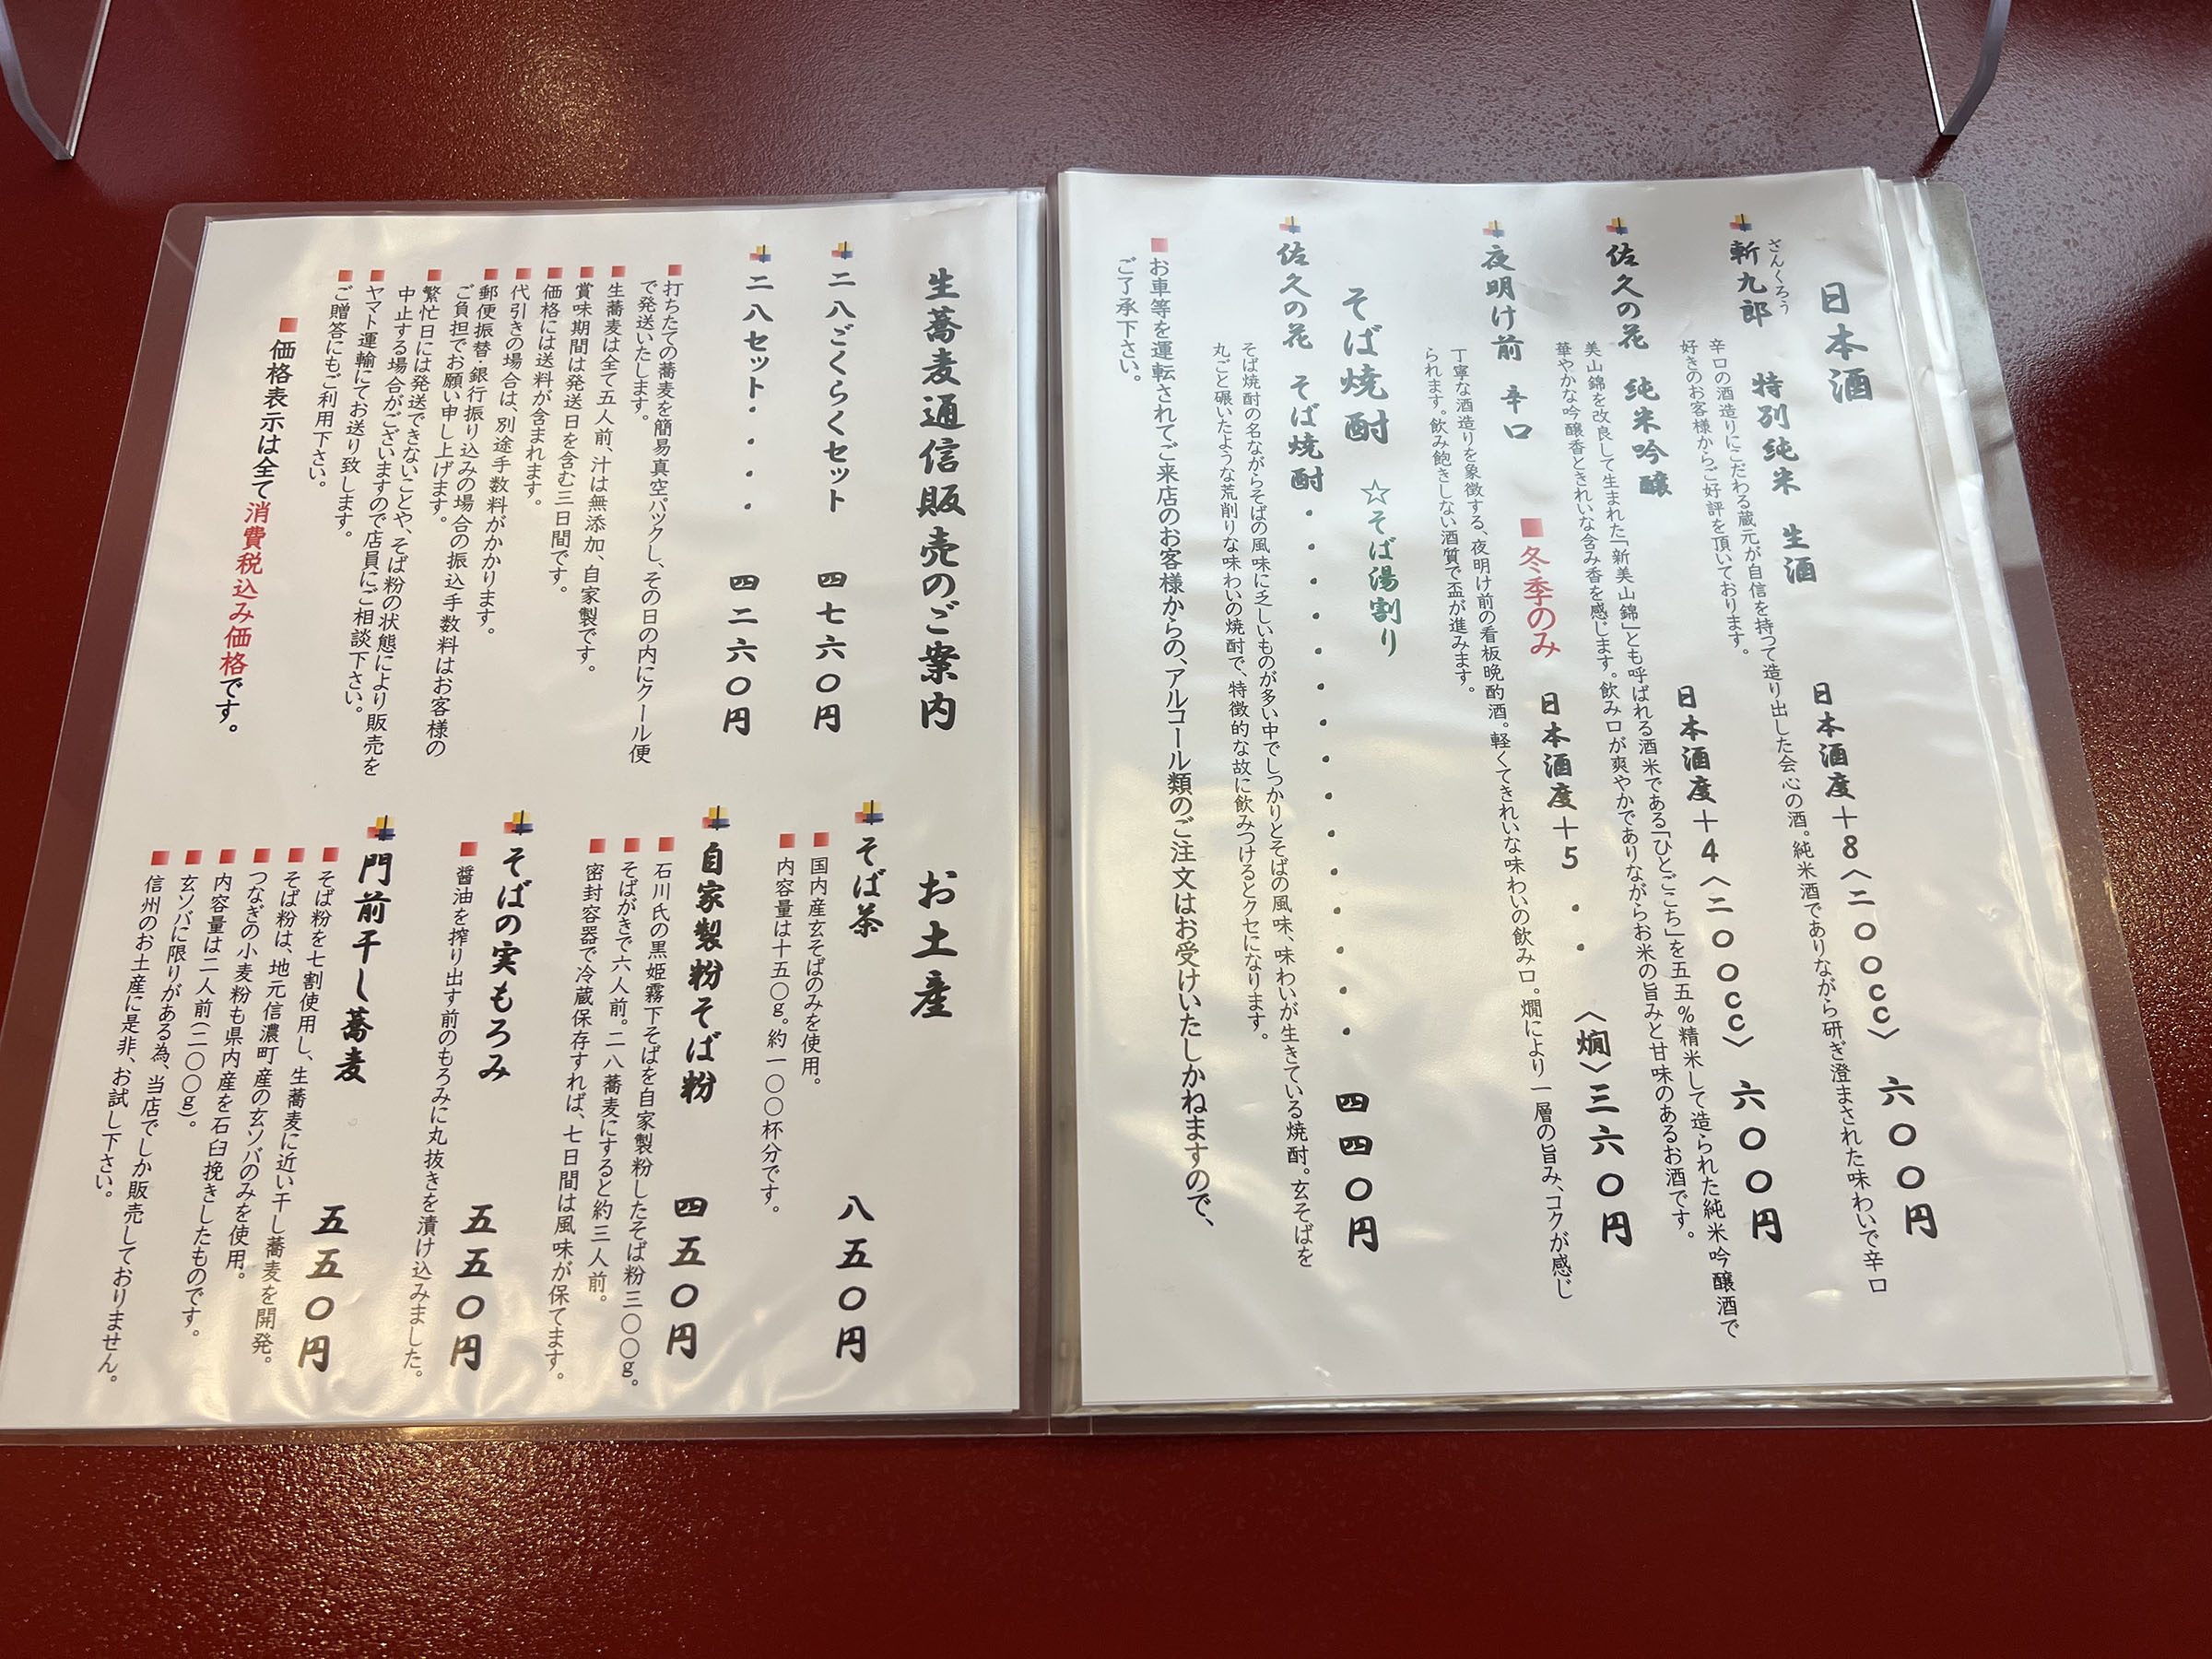 日本酒
ざんくろう
斬九郎 特別純米 生酒 日本酒度+8〈二〇〇cc〉 六〇〇円
辛口の酒造りにこだわる蔵元が自信を持って造り出した会心の酒。純米酒でありながら研ぎ澄まされた味わいで辛口
好きのお客様からご好評を頂いております。
佐久の花 純米吟醸 日本酒度+4〈二〇〇cc〉 六〇〇円
美山錦を改良して生まれた「新美山錦」とも呼ばれる酒米である「ひとごこち」を五五%精米して造られた純米吟醸酒で
華やかな吟醸香ときれいな含み香を感じます。飲み口が爽やかでありながらお米の旨みと甘味のあるお酒です。
■冬季のみ
夜明け前 辛口 日本酒度+5・・〈燗〉三六〇円
丁寧な酒造りを象徴する、夜明け前の看板晩酌酒。軽くてきれいな味わいの飲み口。燗により一層の旨み、コクが感じ
られます。飲み飽きしない酒質で盃が進みます。
そば焼酎 ☆そば湯割り
佐久の花 そば焼酎・・・・・・・・・・・・・・・四四〇円
そば焼酎の名ながらそばの風味に乏しいものが多い中でしっかりとそばの風味、味わいが生きている焼酎。玄そばを
丸ごと碾いたような荒削りな味わいの焼酎で、特徴的な故に飲みつけるとクセになります。
■お車等を運転されてご来店のお客様からの、アルコール類のご注文はお受けいたしかねますので、
ご了承下さい。
生蕎麦通信販売のご案内
二八ごくらくセット 四七六〇円
二八セット・・・・四二六〇円
■打ちたての蕎麦を簡易真空パックし、その日の内にクール便
で発送いたします。
■生蕎麦は全て五人前、汁は無添加、自家製です。
■賞味期間は発送日を含む三日間です。
■価格には送料が含まれます。
■代引きの場合は、別途手数料がかかります。
■郵便振替・銀行振り込みの場合の振込手数料はお客様の
ご負担でお願い申し上げます。
■繁忙日には発送できないことや、そば粉の状態により販売を
中止する場合がございますので店員にご相談下さい。
■ヤマト運輸にてお送り致します。
■ご贈答にもご利用下さい。
■価格表示は全て消費税込み価格です。
お土産
そば茶 八五〇円
■国内産玄そばのみを使用。
■内容量は十五〇g。約一〇〇杯分です。
自家製粉そば粉 四五〇円
■石川氏の黒姫霧下そばを自家製粉したそば粉三〇〇g。
■そばがきで六人前。二八蕎麦にすると約三人前。
■密封容器で冷蔵保存すれば、七日間は風味が保てます。
そばの実もろみ 五五〇円
■醤油を搾り出す前のもろみに丸抜きを漬け込みました。
門前干し蕎麦 五五〇円
■そば粉を七割使用し、生蕎麦に近い干し蕎麦を開発。
■そば粉は、地元信濃町産の玄ソバのみを使用。
■つなぎの小麦粉も県内産を石臼挽きしたものです。
■内容量は二人前(二〇〇g)。
■玄ソバに限りがある為、当店でしか販売しておりません。
■信州のお土産に是非、お試し下さい。